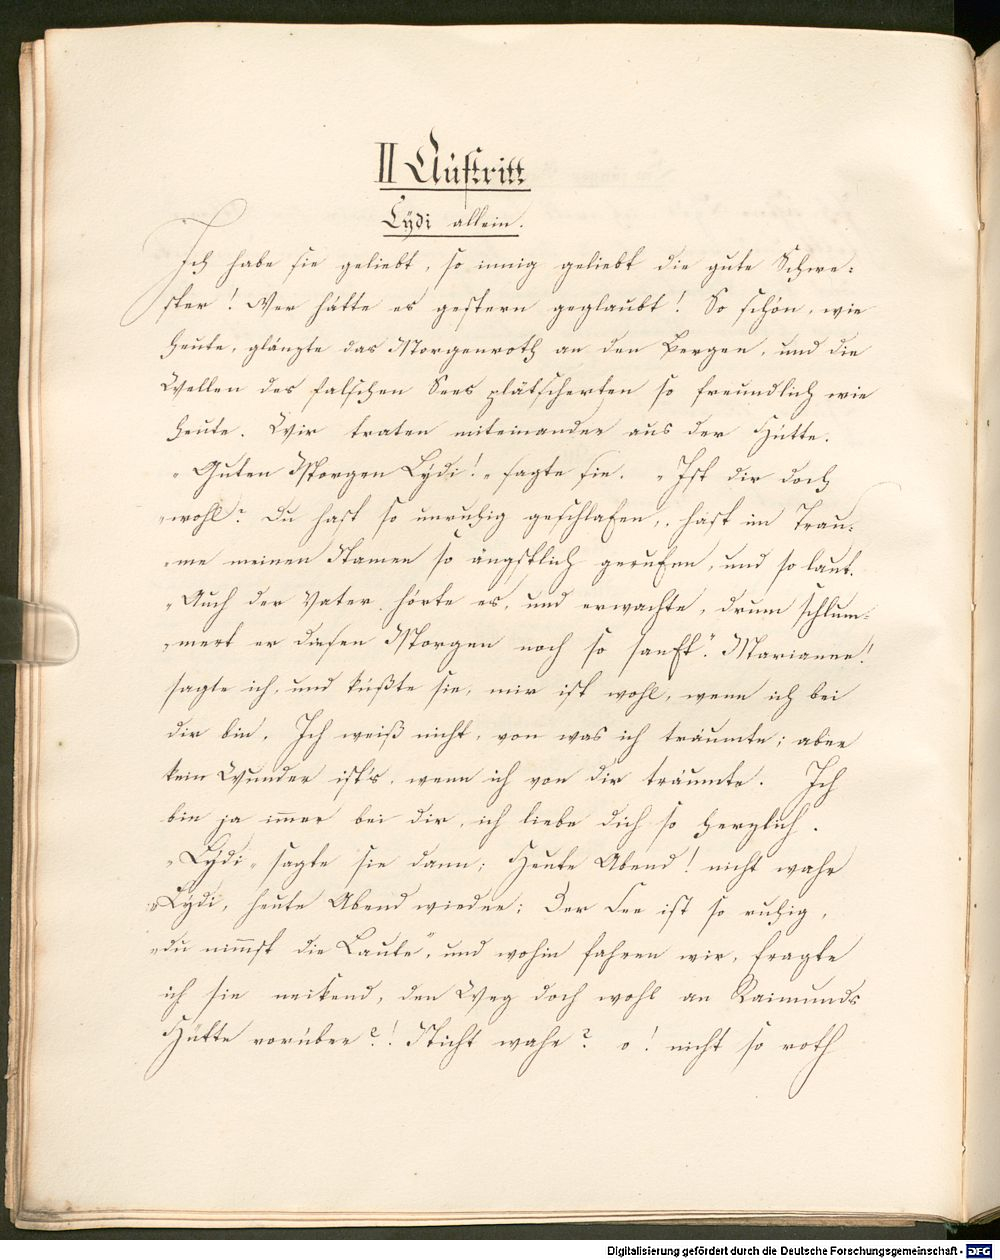 II Auftritt
Lÿdi allein.
Ich habe sie geliebt, so innig geliebt die gute Schwe:
ster! Wer hätte es gestern geglaubt! So schön, wie
heute, glänzte das Morgenroth an den Bergen, und die
Wellen des falschen Sees plätscherten so freundlich wie
heute. Wir traten miteinander aus der Hütte.
„Guten Morgen Lÿdi!„ sagte sie. „Ist dir doch
„wohl? Du hast so unruhig geschlafen, hast im Trau:
„me meinen Namen so ängstlich gerufen, und so laut.
„Auch der Vater hörte es, und erwachte, drum schlum:
„mert er diesen Morgen noch so sanft." Marianne!
sagte ich, und küßte sie, mir ist wohl, wenn ich bei
dir bin. Ich weiß nicht, von was ich träumte; aber
kein Wunder ist's, wenn ich von dir träumte. Ich
bin ja immer bei dir, ich liebe dich so herzlich.
„Lÿdi„ sagte sie dann; Heute Abend! nicht wahr
„Lÿdi, heute Abend wieder; Der See ist so ruhig,
„du nim̄st die Laute", und wohin fahren wir, fragte
ich sie neckend, den Weg doch wohl an Raimunds
Hütte vorüber?! Nicht wahr? o! nicht so roth
Digitalisierung gefördert durch die Deutsche Forschungsgemeinschaft - DFG